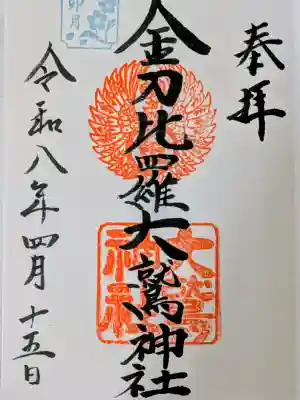 奉拝
金刀比羅大鷲神社
令和八年四月十五日
卯月